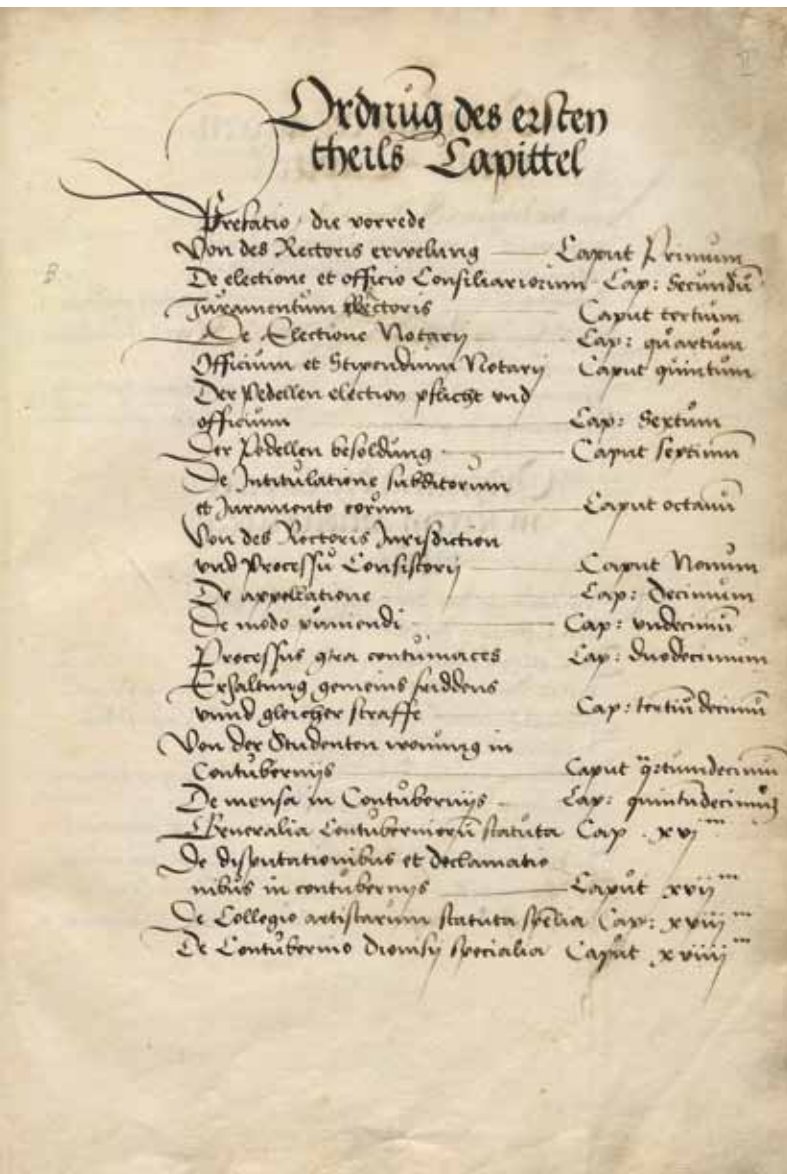 Ordnūg des ersten
theils Capittel
Prefatio / die vorrede
Von des Rectoris erwelung Caput Primum
De electione et officio Consiliariorum Cap: Secundū
Juramentum Rectoris Caput tertium
De Electione Notarij Cap: quartum
Officium et Stipendium Notarij Caput quintum
Der Pedellen election pflicht vnd
officium Cap: Sextum
Der Pedellen besoldung Caput septimū
De Intitulatione subditorum
et Juramento eorum Caput octauū
Von des Rectoris Jurisdiction
vnd Processu Consistorij Caput Nonum
De appellatione Cap: Decimum
De modo puniendi Cap: vndecimū
Processus cōtra contumaces Cap: duodecimum
Erhaltung gemeins friddens
vnnd gleicher straffe Cap: tertiū decimū
Von der Studenten wonung in
Contubernijs Caput qrtumdecimū
De mensa in Contubernijs Cap: quintūdecimū
Generalia Contuberniorū statuta Cap. xvj
De disputationibus et declamatio
nibus in contubernijs Caput xvij
De Collegio artistarum statuta spēlia Cap: xviij
De Contubernio Dionisij specialia Caput xviiij